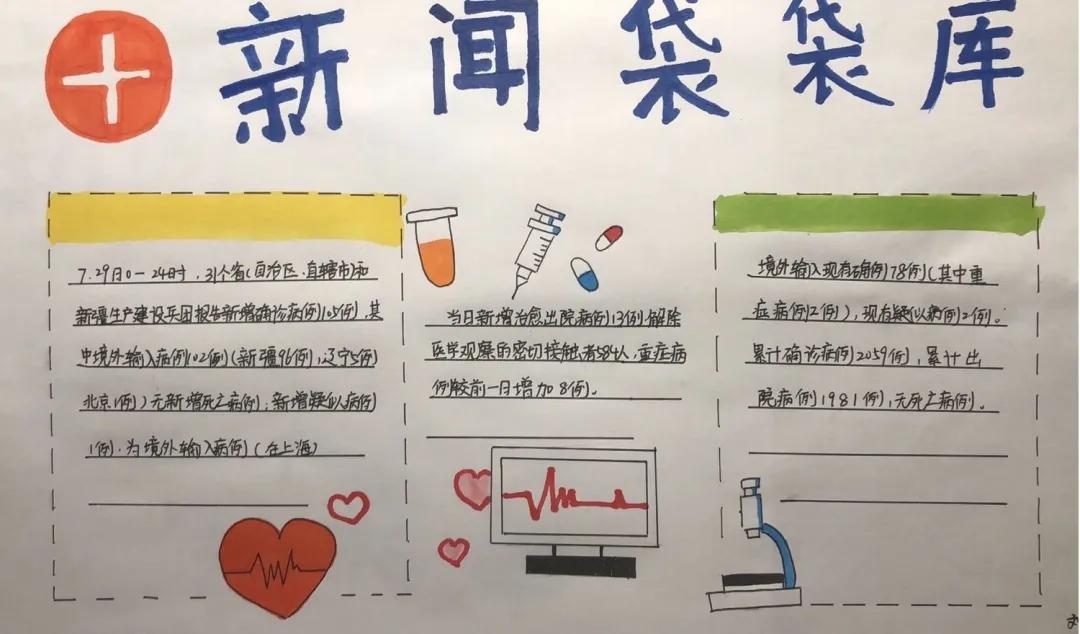 新闻袋袋库
7.29日0-24时，31个省(自治区、直辖市)和
新疆生产建设兵团报告新增确诊病例105例，其
中境外输入病例102例(新疆96例，辽宁5例
北京1例)无新增死亡病例；新增疑似病例
1例，为境外输入病例(在上海)
当日新增治愈出院病例13例解除
医学观察的密切接触者584人，重症病
例较前一日增加8例。
境外输入现有确例78例(其中重
症病例2例)，现有疑似病例2例。
累计确诊病例2059例，累计出
院病例1981例，无死亡病例。